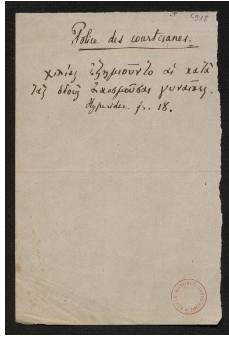 Police des courtisanes.
χιλίας ἐζημιοῦντο αἱ κατὰ
τὰς ὁδοὺς ἀκοσμοῦσαι γυναῖκες.
Hyperides. fr. 18.